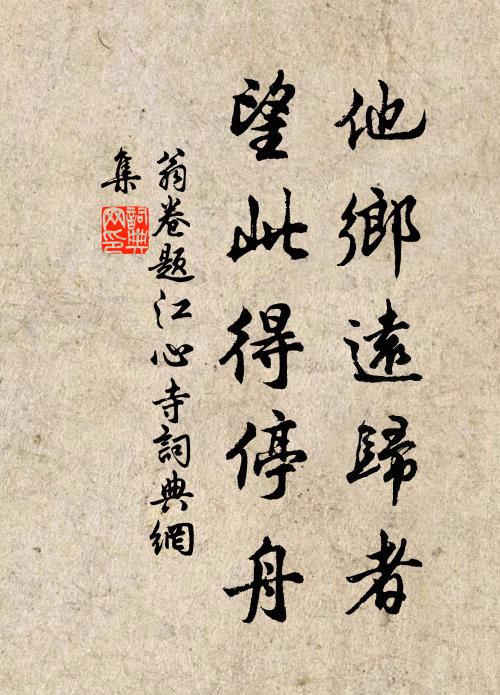 他鄉遠歸者
望此得停舟
翁卷题江心寺詞典網
集
詞典
网印